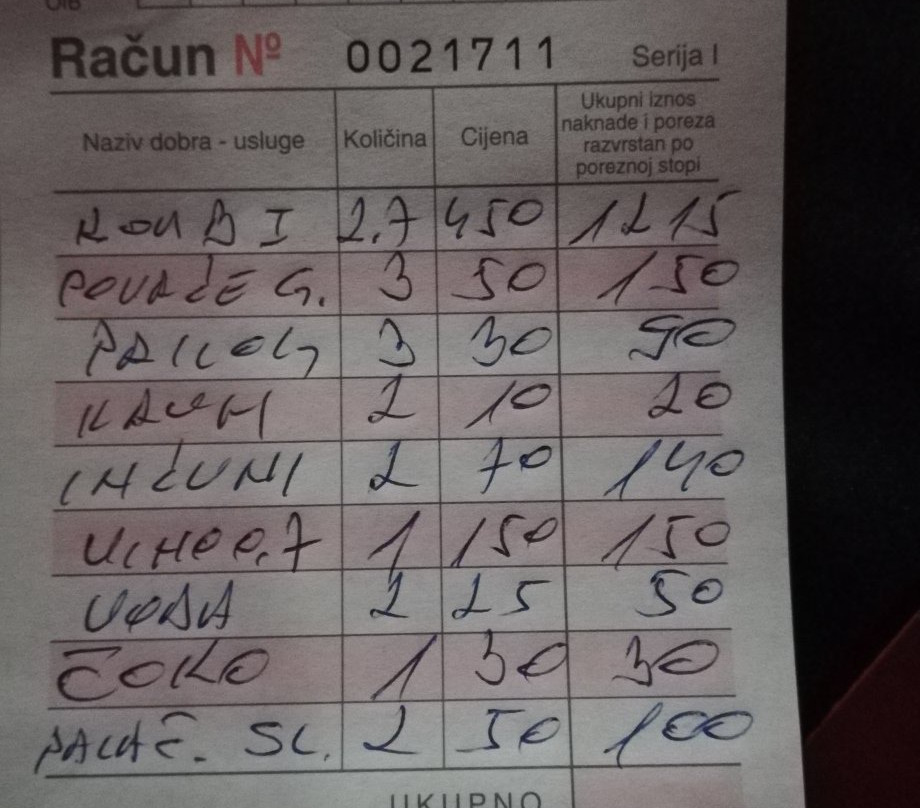 OIB
Račun Nº 0021711 Serija I
Naziv dobra - usluge Količina Cijena Ukupni iznos naknade i poreza razvrstan po poreznoj stopi
2,7 450 1215
POVRĆE G. 3 50 150
3 30 90
2 10 20
INĆUNI 2 70 140
VINO 0,7 1 150 150
VODA 2 25 50
ČOKO 1 30 30
PALAČ. SL. 2 50 100
UKUPNO